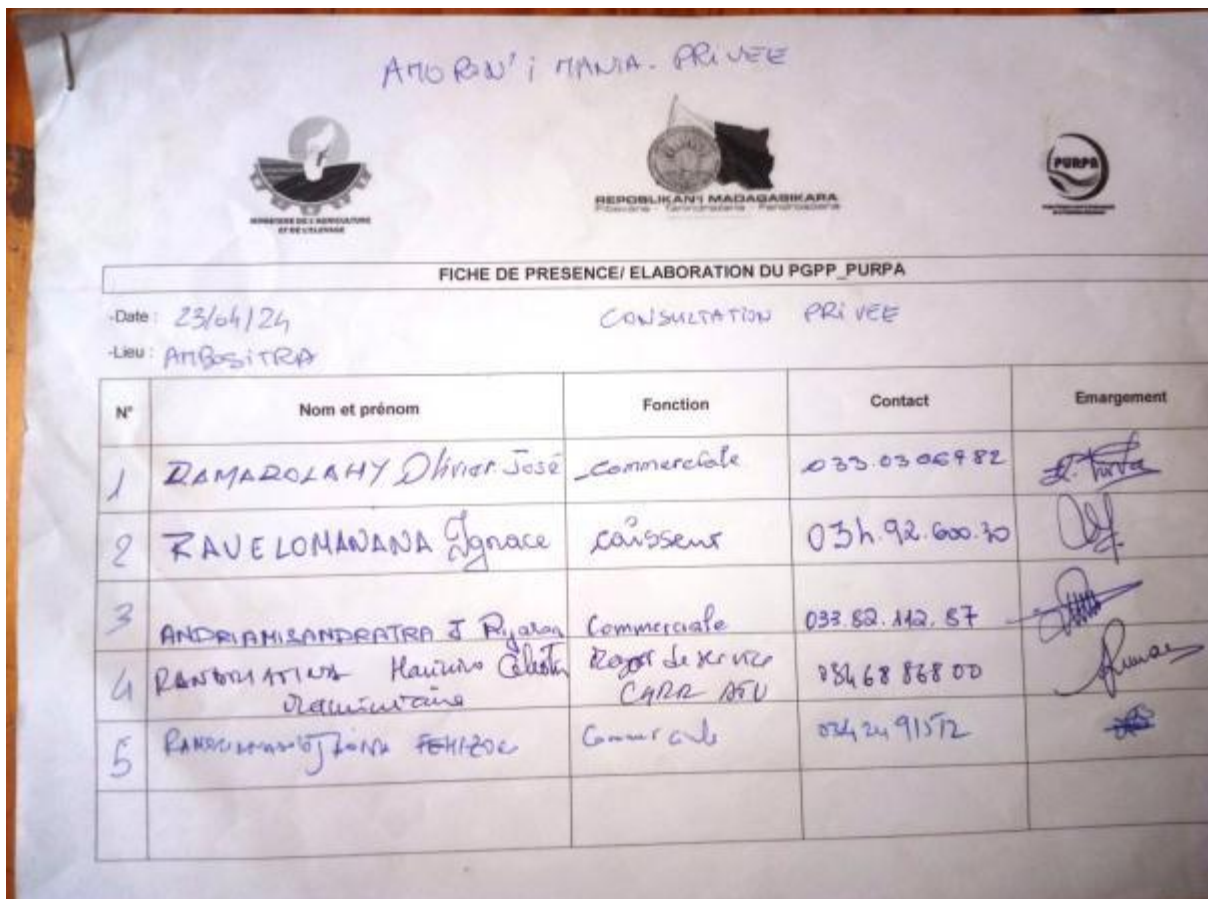 AMORON'i MANIA. PRIVEE
MINISTERE DE L'AGRICULTURE
ET DE L'ELEVAGE
REPOBLIKAN'I MADAGASIKARA
Fitiavana - Tanindrazana - Fandrosoana
PURPA
FICHE DE PRESENCE/ ELABORATION DU PGPP_PURPA
-Date : 23/04/24 CONSULTATION PRIVEE
-Lieu : AMBOSITRA
N° Nom et prénom Fonction Contact Emargement
1 DAMAROLAHY Olivier José commerciale 033.03 069 82
2 RAVELOMANANA Ignace caisseur 034.92.600.30
3 ANDRIAMISANDRATRA J Commerciale 033.82.112.87
4 de service 034 68 868 00
5 034 24 915 72